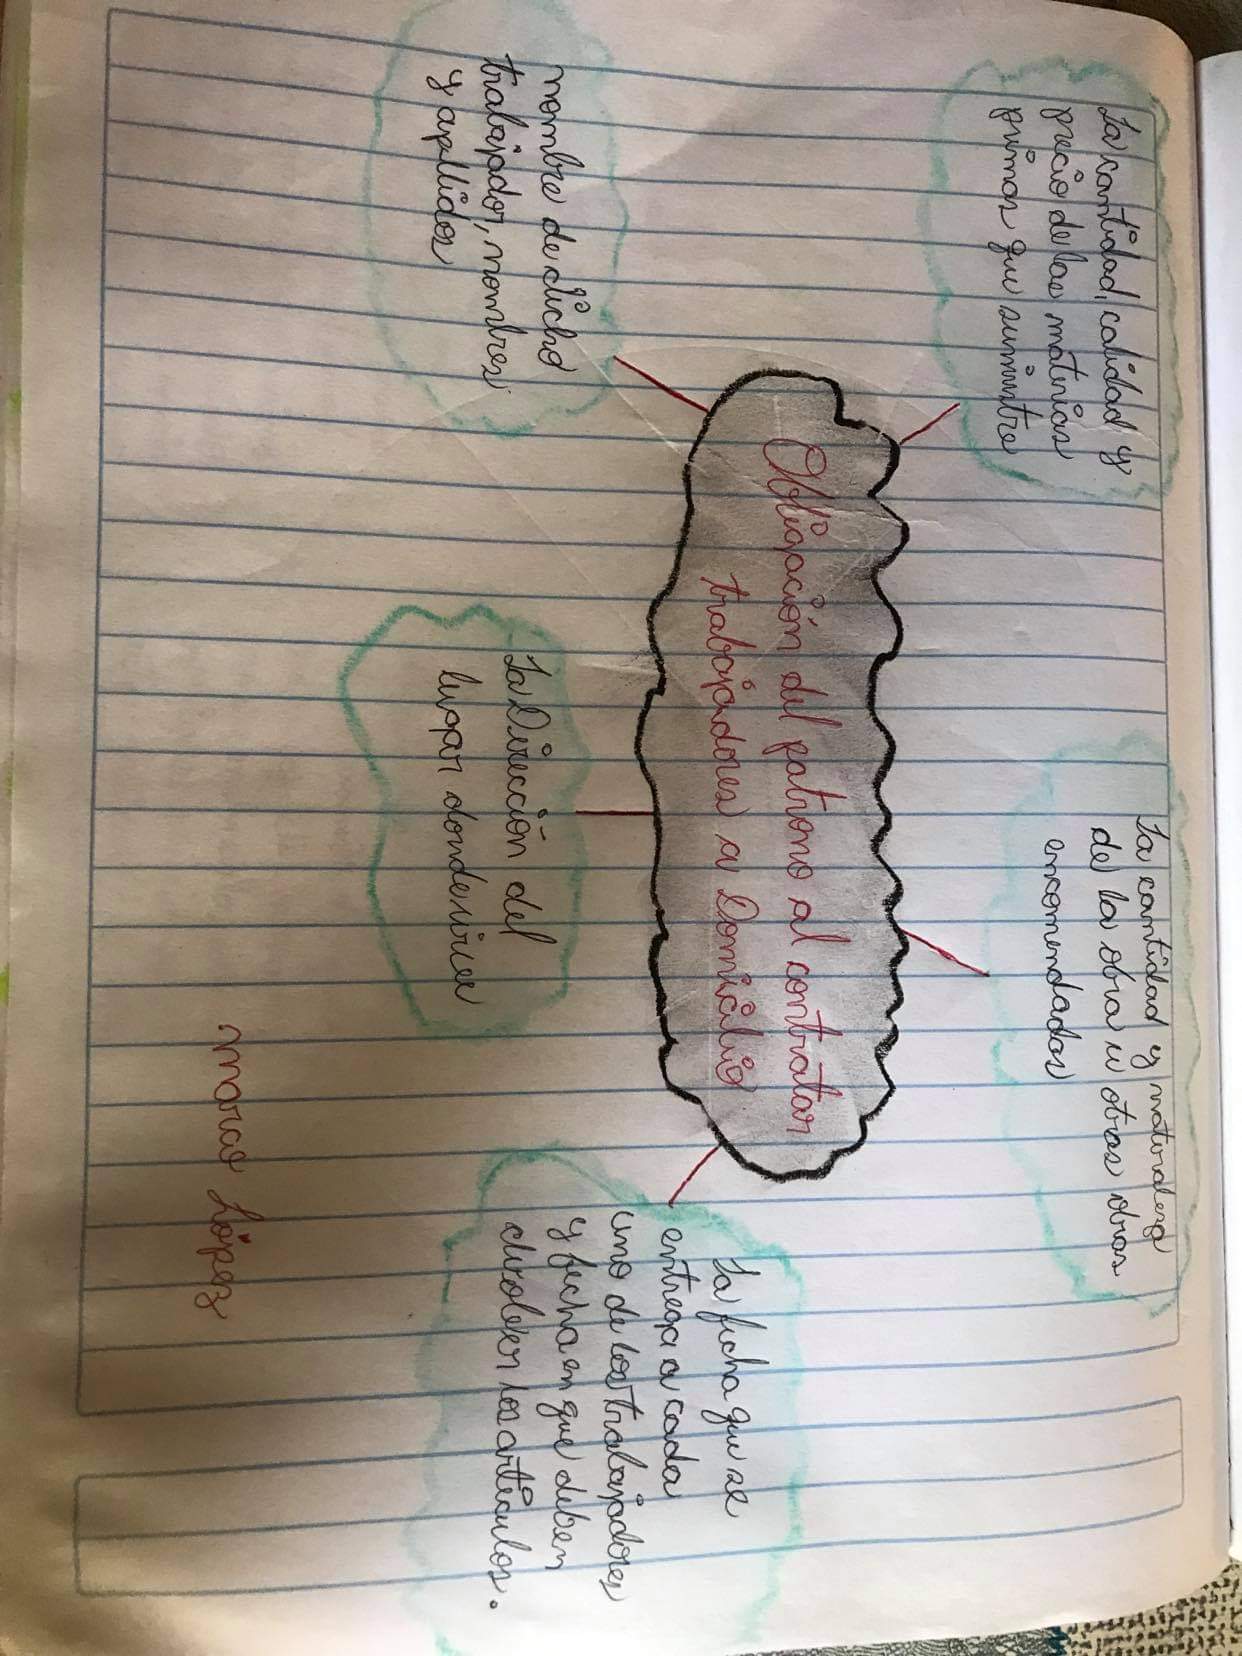 La cantidad, calidad y
precio de las materias
primas que suministre
La cantidad y naturaleza
de la obra u otras obras
encomendadas
Obligación del patrono al contratar
trabajadores a Domicilio
nombre de dicho
trabajador, nombres
y apellidos
La Dirección del
lugar donde vive
La ficha que se
entrega a cada
uno de los trabajadores
y fecha en que deben
devolver los artículos.
marcio López